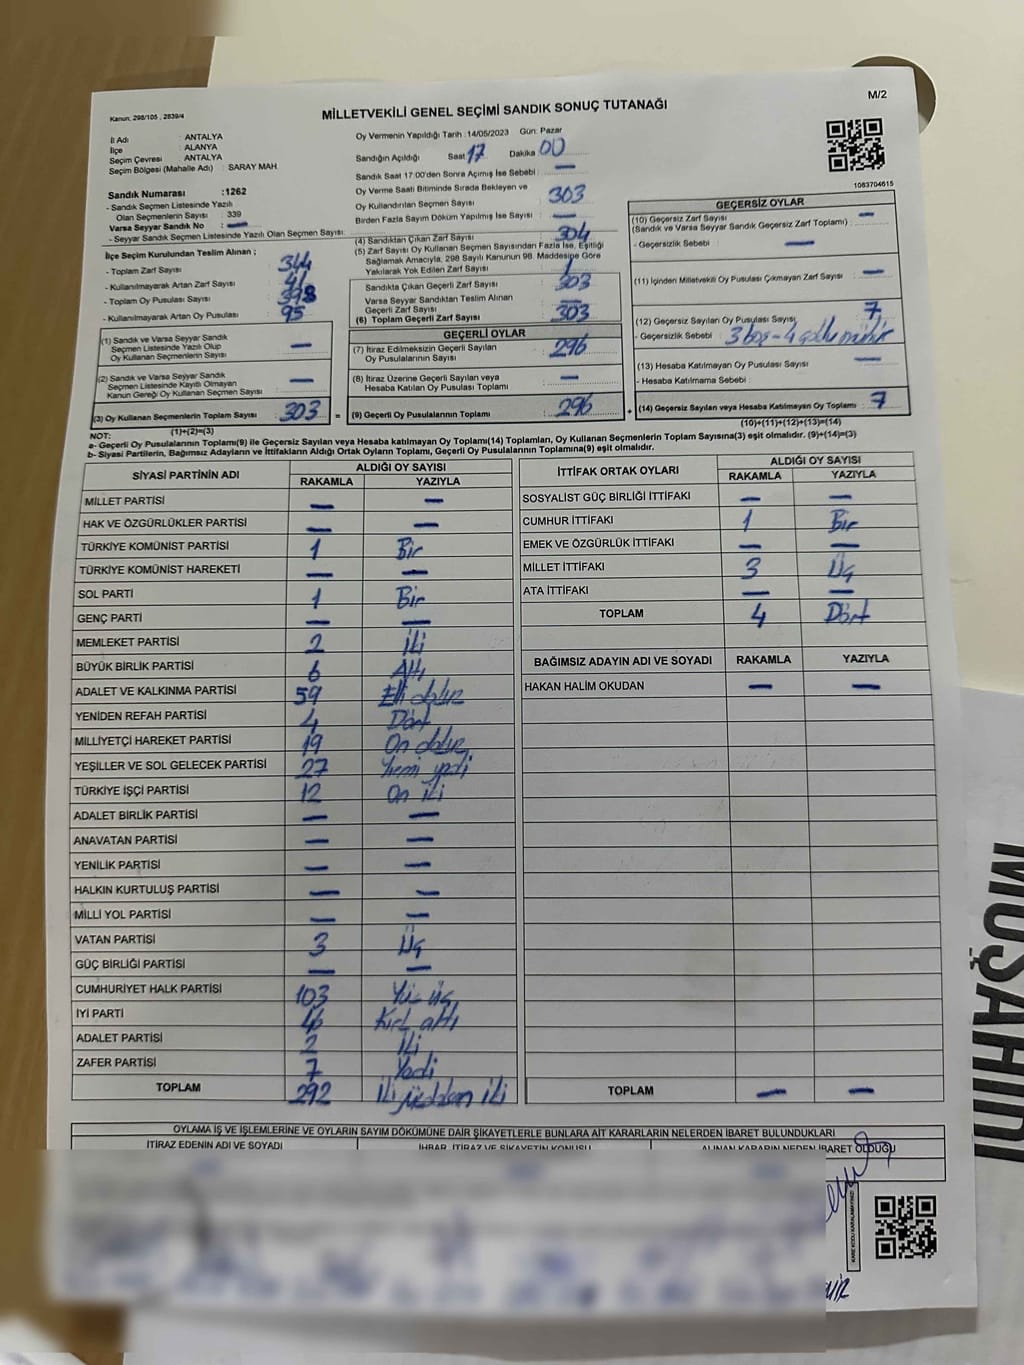 M/2
Kanun. 298/105 , 2839/4
MİLLETVEKİLİ GENEL SEÇİMİ SANDIK SONUÇ TUTANAĞI
İl Adı : ANTALYA
İlçe : ALANYA
Seçim Çevresi : ANTALYA
Seçim Bölgesi (Mahalle Adı) : SARAY MAH
Sandık Numarası :1262
- Sandık Seçmen Listesinde Yazılı
Olan Seçmenlerin Sayısı : 339
Varsa Seyyar Sandık No : —
- Seyyar Sandık Seçmen Listesinde Yazılı Olan Seçmen Sayısı:
İlçe Seçim Kurulundan Teslim Alınan ;
- Toplam Zarf Sayısı : 344
- Kullanılmayarak Artan Zarf Sayısı : 41
- Toplam Oy Pusulası Sayısı : 398
- Kullanılmayarak Artan Oy Pusulası : 95
(1) Sandık ve Varsa Seyyar Sandık
Seçmen Listesinde Yazılı Olup
Oy Kullanan Seçmenlerin Sayısı —
(2) Sandık ve Varsa Seyyar Sandık
Seçmen Listesinde Kayıtlı Olmayan
Kanun Gereği Oy Kullanan Seçmen Sayısı —
(3) Oy Kullanan Seçmenlerin Toplam Sayısı 303 =
(1)+(2)=(3)
Oy Vermenin Yapıldığı Tarih :14/05/2023 Gün: Pazar
Sandığın Açıldığı Saat 17 Dakika 00
Sandık Saat 17:00'den Sonra Açımış İse Sebebi : —
Oy Verme Saati Bitiminde Sırada Bekleyen ve
Oy Kullandırılan Seçmen Sayısı : 303
Birden Fazla Sayım Döküm Yapılmış İse Sayısı : —
(4) Sandıktan Çıkan Zarf Sayısı : 304
(5) Zarf Sayısı Oy Kullanan Seçmen Sayısından Fazla İse, Eşitliği
Sağlamak Amacıyla, 298 Sayılı Kanunun 98. Maddesine Göre
Yakılarak Yok Edilen Zarf Sayısı : 1
Sandıkta Çıkan Geçerli Zarf Sayısı : 303
Varsa Seyyar Sandıktan Teslim Alınan
Geçerli Zarf Sayısı : —
(6) Toplam Geçerli Zarf Sayısı : 303
GEÇERLİ OYLAR
(7) İtiraz Edilmeksizin Geçerli Sayılan
Oy Pusulalarının Sayısı : 296
(8) İtiraz Üzerine Geçerli Sayılan veya
Hesaba Katılan Oy Pusulaları Toplamı : —
(9) Geçerli Oy Pusulalarının Toplamı : 296 +
1083704615
GEÇERSİZ OYLAR
(10) Geçersiz Zarf Sayısı
(Sandık ve Varsa Seyyar Sandık Geçersiz Zarf Toplamı) : —
- Geçersizlik Sebebi : —
(11) İçinden Milletvekili Oy Pusulası Çıkmayan Zarf Sayısı : —
(12) Geçersiz Sayılan Oy Pusulası Sayısı : 7
- Geçersizlik Sebebi : 3 boş - 4 mühür
(13) Hesaba Katılmayan Oy Pusulası Sayısı : —
- Hesaba Katılmama Sebebi :
(14) Geçersiz Sayılan veya Hesaba Katılmayan Oy Toplamı : 7
(10)+(11)+(12)+(13)=(14)
NOT:
a- Geçerli Oy Pusulalarının Toplamı(9) ile Geçersiz Sayılan veya Hesaba katılmayan Oy Toplamı(14) Toplamları, Oy Kullanan Seçmenlerin Toplam Sayısına(3) eşit olmalıdır. (9)+(14)=(3)
b- Siyasi Partilerin, Bağımsız Adayların ve İttifakların Aldığı Ortak Oyların Toplamı, Geçerli Oy Pusulalarının Toplamına(9) eşit olmalıdır.
SİYASİ PARTİNİN ADI ALDIĞI OY SAYISI
RAKAMLA YAZIYLA
MİLLET PARTİSİ — —
HAK VE ÖZGÜRLÜKLER PARTİSİ — —
TÜRKİYE KOMÜNİST PARTİSİ 1 Bir
TÜRKİYE KOMÜNİST HAREKETİ — —
SOL PARTİ 1 Bir
GENÇ PARTİ — —
MEMLEKET PARTİSİ 2 İki
BÜYÜK BİRLİK PARTİSİ 6 Altı
ADALET VE KALKINMA PARTİSİ 59 Elli dokuz
YENİDEN REFAH PARTİSİ 4 Dört
MİLLİYETÇİ HAREKET PARTİSİ 19 On dokuz
YEŞİLLER VE SOL GELECEK PARTİSİ 27 Yirmi yedi
TÜRKİYE İŞÇİ PARTİSİ 12 On iki
ADALET BİRLİK PARTİSİ — —
ANAVATAN PARTİSİ — —
YENİLİK PARTİSİ — —
HALKIN KURTULUŞ PARTİSİ — —
MİLLİ YOL PARTİSİ — —
VATAN PARTİSİ 3 Üç
GÜÇ BİRLİĞİ PARTİSİ — —
CUMHURİYET HALK PARTİSİ 103 Yüz üç
İYİ PARTİ 46 Kırk altı
ADALET PARTİSİ 2 İki
ZAFER PARTİSİ 7 Yedi
TOPLAM 292 İki yüzdoksan iki
İTTİFAK ORTAK OYLARI ALDIĞI OY SAYISI
RAKAMLA YAZIYLA
SOSYALİST GÜÇ BİRLİĞİ İTTİFAKI — —
CUMHUR İTTİFAKI 1 Bir
EMEK VE ÖZGÜRLÜK İTTİFAKI — —
MİLLET İTTİFAKI 3 Üç
ATA İTTİFAKI — —
TOPLAM 4 Dört
BAĞIMSIZ ADAYIN ADI VE SOYADI RAKAMLA YAZIYLA
HAKAN HALİM OKUDAN — —
TOPLAM — —
OYLAMA İŞ VE İŞLEMLERİNE VE OYLARIN SAYIM DÖKÜMÜNE DAİR ŞİKAYETLERLE BUNLARA AİT KARARLARIN NELERDEN İBARET BULUNDUKLARI
İTİRAZ EDENİN ADI VE SOYADI İHBAR, İTİRAZ VE ŞİKAYETİN KONUSU ALINAN KARARIN NEDEN İBARET OLDUĞU
MÜŞAHİDİ